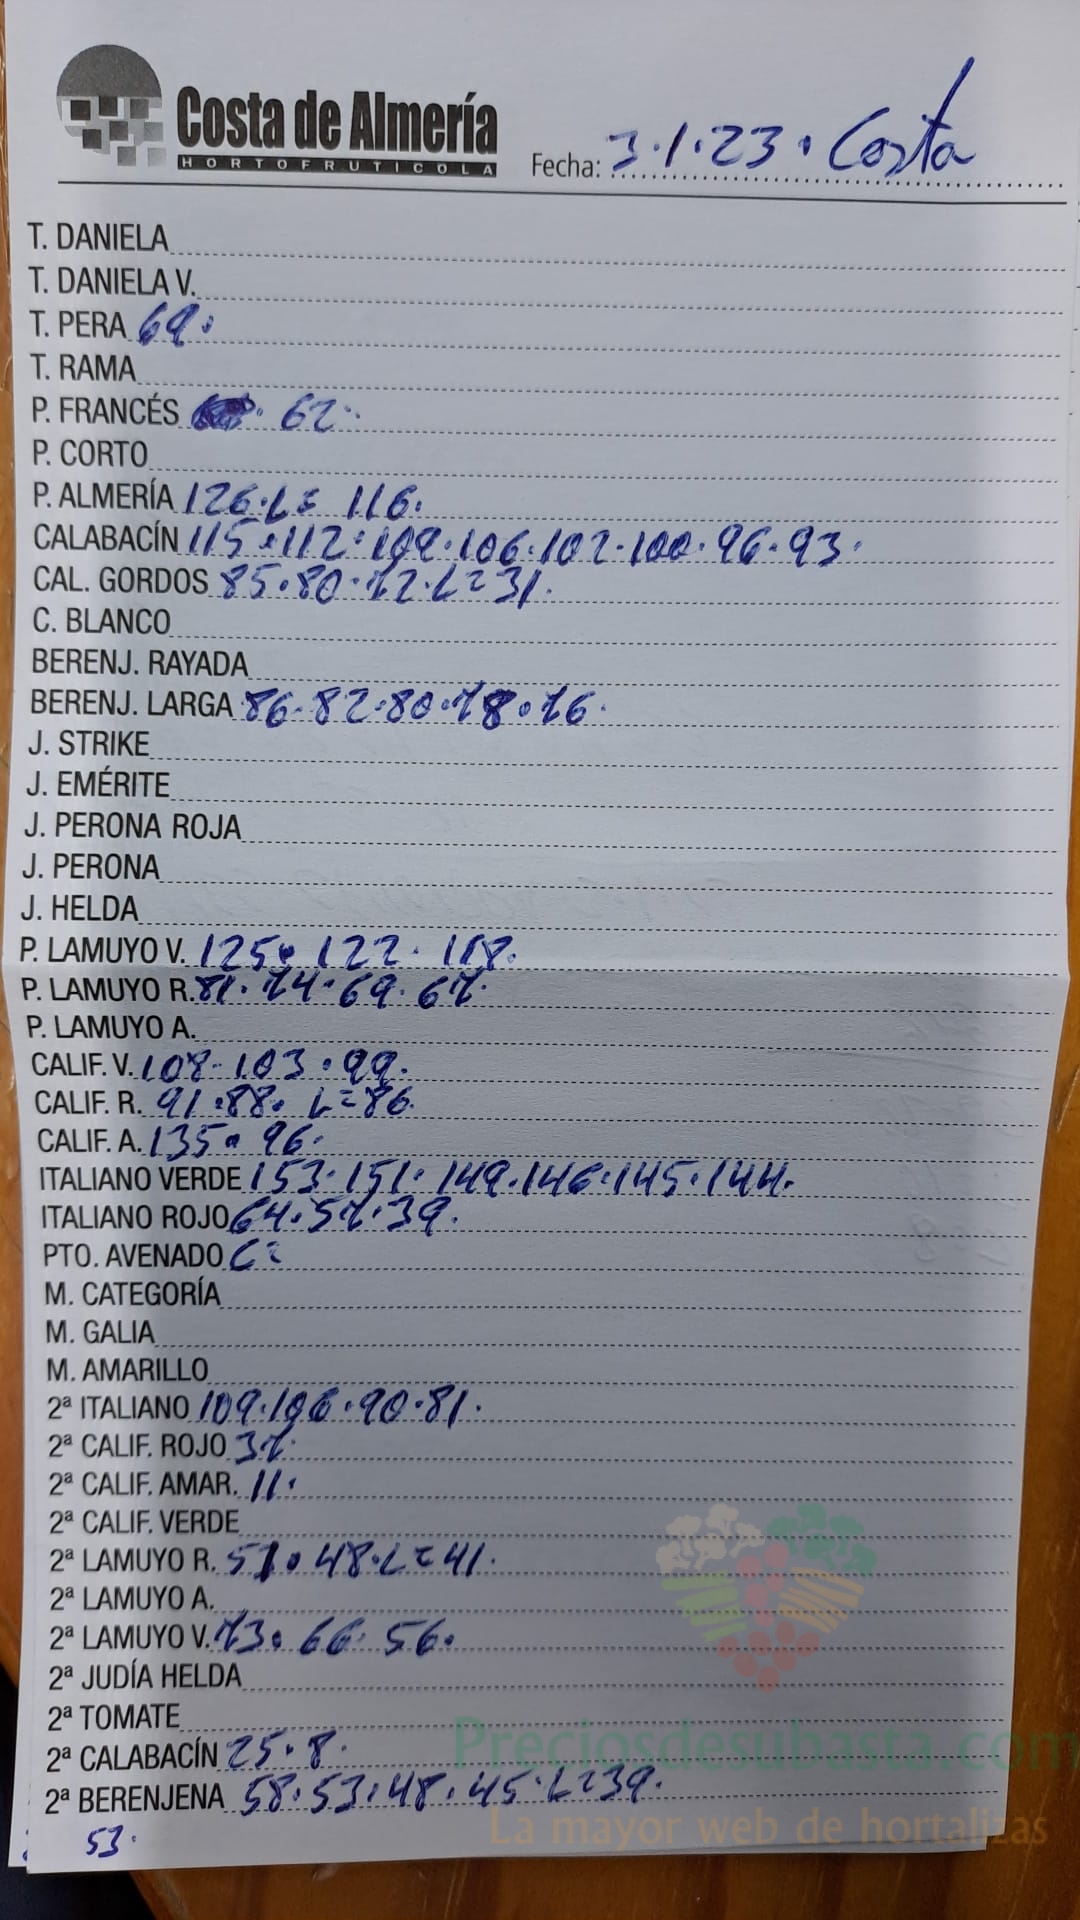 Costa de Almería
HORTOFRUTICOLA
Fecha: 3.1.23. Costa
T. DANIELA
T. DANIELA V.
T. PERA 69.
T. RAMA
P. FRANCÉS 62.
P. CORTO
P. ALMERÍA 126.L= 116.
CALABACÍN 115.112.109.106.102.100.96.93.
CAL. GORDOS 85.80.72.L=31.
C. BLANCO
BERENJ. RAYADA
BERENJ. LARGA 86.82.80.78.76.
J. STRIKE
J. EMÉRITE
J. PERONA ROJA
J. PERONA
J. HELDA
P. LAMUYO V. 125. 122. 118.
P. LAMUYO R. 81.74.69.67.
P. LAMUYO A.
CALIF. V. 108.103.99.
CALIF. R. 91.88. L=86.
CALIF. A. 135. 96.
ITALIANO VERDE 153.151.149.146.145.144.
ITALIANO ROJO 64.57.39.
PTO. AVENADO
M. CATEGORÍA
M. GALIA
M. AMARILLO
2ª ITALIANO 109.106.90.81.
2ª CALIF. ROJO 37.
2ª CALIF. AMAR. 11.
2ª CALIF. VERDE
2ª LAMUYO R. 51.48.L=41.
2ª LAMUYO A.
2ª LAMUYO V. 73. 66. 56.
2ª JUDÍA HELDA
2ª TOMATE
2ª CALABACÍN 25.8.
2ª BERENJENA 58.53.48.45.L=39.
53.
Preciosdesubasta.com
La mayor web de hortalizas